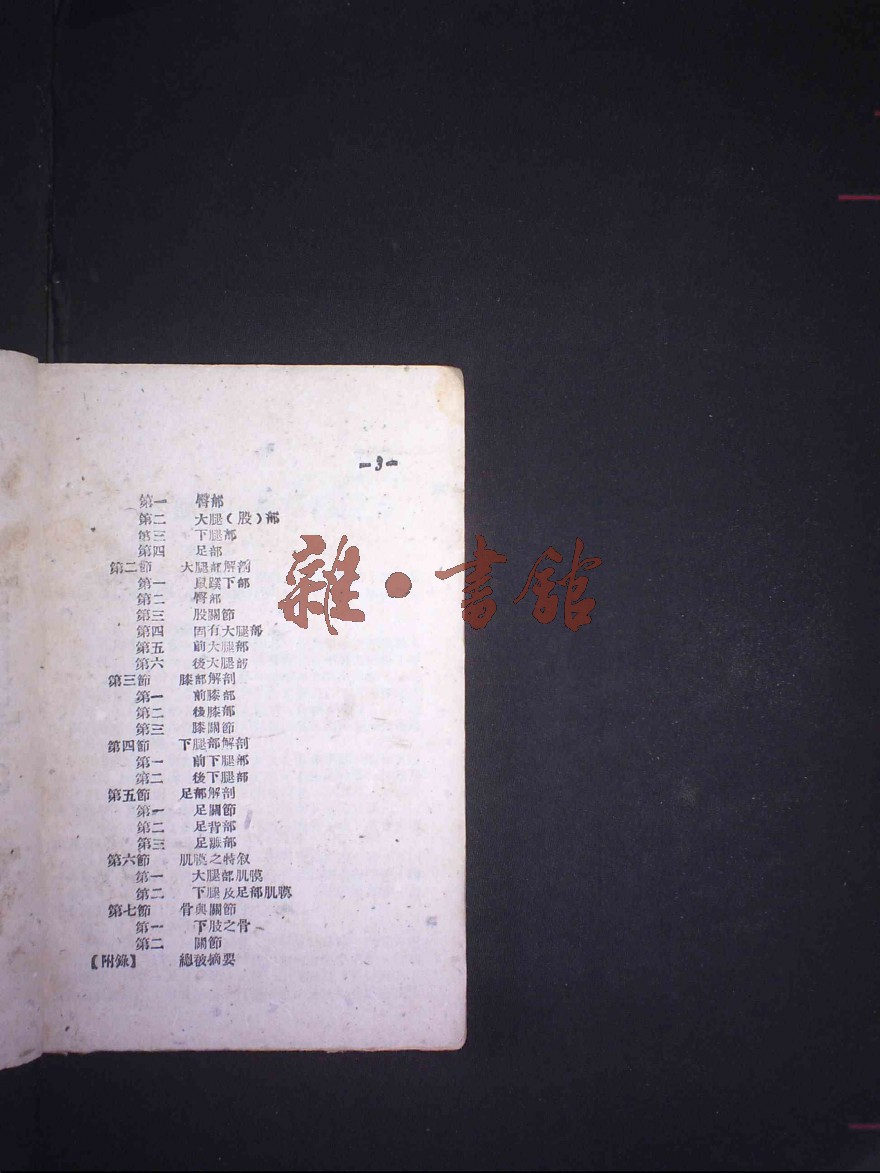 -3-
第一 臀部
第二 大腿(股)部
第三 下腿部
第四 足部
第二節 大腿部解剖
第一 鼠蹊下部
第二 臀部
第三 股關節
第四 固有大腿部
第五 前大腿部
第六 後大腿部
第三節 膝部解剖
第一 前膝部
第二 後膝部
第三 膝關節
第四節 下腿部解剖
第一 前下腿部
第二 後下腿部
第五節 足部解剖
第一 足關節
第二 足背部
第三 足蹠部
第六節 肌膜之特叙
第一 大腿部肌膜
第二 下腿及足部肌膜
第七節 骨與關節
第一 下肢之骨
第二 關節
【附錄】 總被摘要
雜·書館